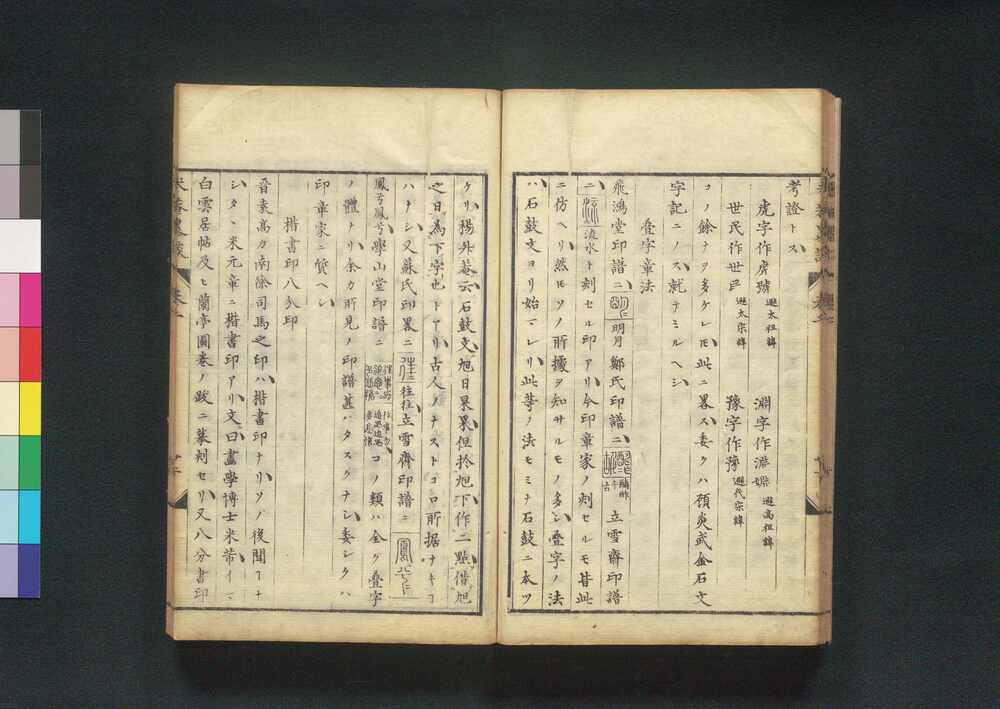 考證トス
虎字作虎號 避太祖諱 淵字作淵 避高祖諱
世民作世 避太宗諱 豫字作豫 避代宗諱
ソノ餘ナヲ多ケレㇳモ此ニ畧ス委クハ顧炎武金石文
字記ニノス就テミルヘシ
疊字章法
飛鴻堂印譜ニ 明月 鄭氏印譜ニ 立雪齋印譜
ニ 流水ト刻セル印アリ今印章家ノ刻セルモ皆此
ニ仿ヘリ然レㇳモソノ所據ヲ知サルモノ多シ疊字ノ法
ハ石鼓文ヨリ始マレリ此等ノ法モミナ石鼓ニ本ツ
ケリ楊升菴云石鼓文旭日杲杲但於旭下作二點借旭
之日爲下字也トアリ古人ノナストコロ所据ナキコ
ハナシ又蘇氏印畧ニ 往往 立雪齋印譜ニ
鳳兮鳳兮學山堂印譜ニ コノ類ハ全ク疊字
ノ體ナリ余カ所見ノ印譜甚ハタスクナシ委シクハ
印章家ニ質ヘシ
楷書印八分印
晉袁高カ南徐司馬之印ハ楷書印ナリソノ後聞ヿナ
シタヽ米元章ニ楷書印アリ文曰畫學博士米芾イマ
白雲居帖及ヒ蘭亭圖卷ノ跋ニ摹刻セリ又八分書印